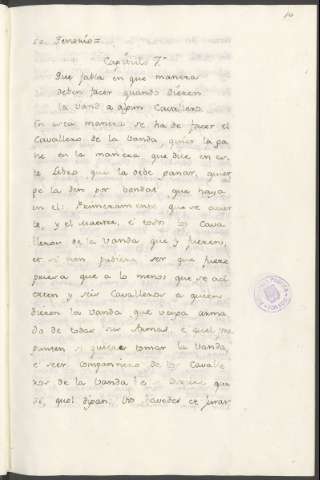 10
so Tenorio=
Capitulo 7º
Que fabla en que manera
deben facer quando dieren
la vanda a algun Cavallero.
En esta manera se ha de facer el
Cavallero de la Vanda, quier la ga
ne en la manera que dice en es
te Libro, que la debe ganar, quier
ge la den por bondat que haya
en el: Primeramente que se aiun
te, y el Maestre, é todos los Cava-
lleros de la Vanda que y fueren,
et si non pudiere ser que fuere
priesa que a lo menos que se ací
erten y seis Cavalleros a quien
dieren la Vanda que vaya arma
do de todas sus Armas, é quel pre
gunten si quiere tomar la Vanda,
é seer compannero de los Cavalle
ros de la Vanda! é que
si, quel digan, Vos havedes de jurar